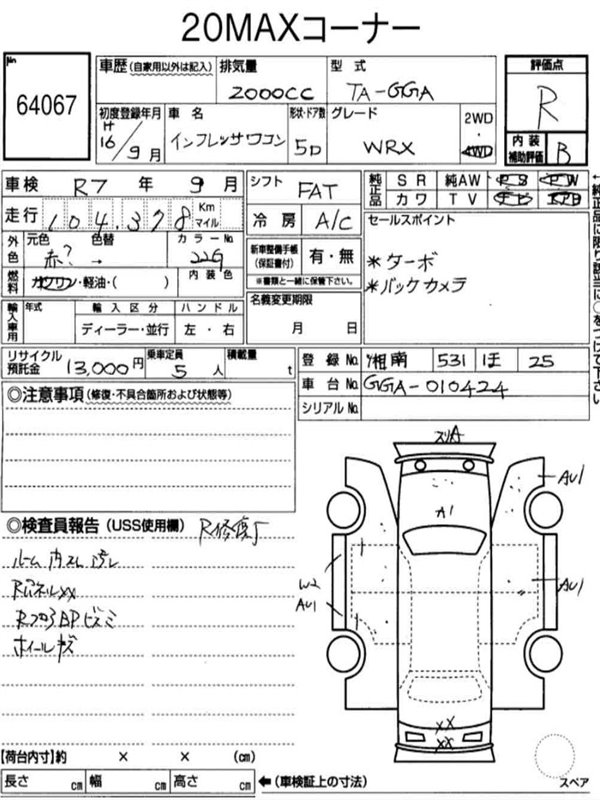 20MAXコーナー
No. 64067
車歴 (自家用以外は記入) 排気量 型式 評価点
2000CC TA-GGA R
初度登録年月 車名 形状・ドア数 グレード 2WD・4WD 内装補助評価 B
H16/9月 インプレッサワゴン 5D WRX
車検 R7年 9月 シフト FAT 純正品 SR 純AW PS PW
カワ TV ナビ エアB
走行 104,378 Km マイル 冷房 A/C セールスポイント
外色 元色 赤? 色替 → カラーNo. 22G 新車整備手帳(保証書付) 有・無 *ターボ
※書類と一緒に保管下さい。 *バックカメラ
燃料 ガソリン・軽油・( ) 内装色
名義変更期限 月 日
輸入車用 年式 輸入区分 ハンドル
ディーラー・並行 左・右
リサイクル預託金 13,000円 乗車定員 5人 積載量 t
登録No. 湘南 531 ほ 25
車台No. GGA-010424
シリアルNo.
◎注意事項(修復・不具合箇所および状態等)
◎検査員報告(USS使用欄)
ルーム 内 汚レ
RパネルXX
ホイールキズ
スリA
AU1
A1
W2
AU1
AU1
XX
XX
【荷台内寸】約 × × (cm)
長さ cm 幅 cm 高さ cm ←(車検証上の寸法)
スペア
←純正品に限り該当に○をつけて下さい